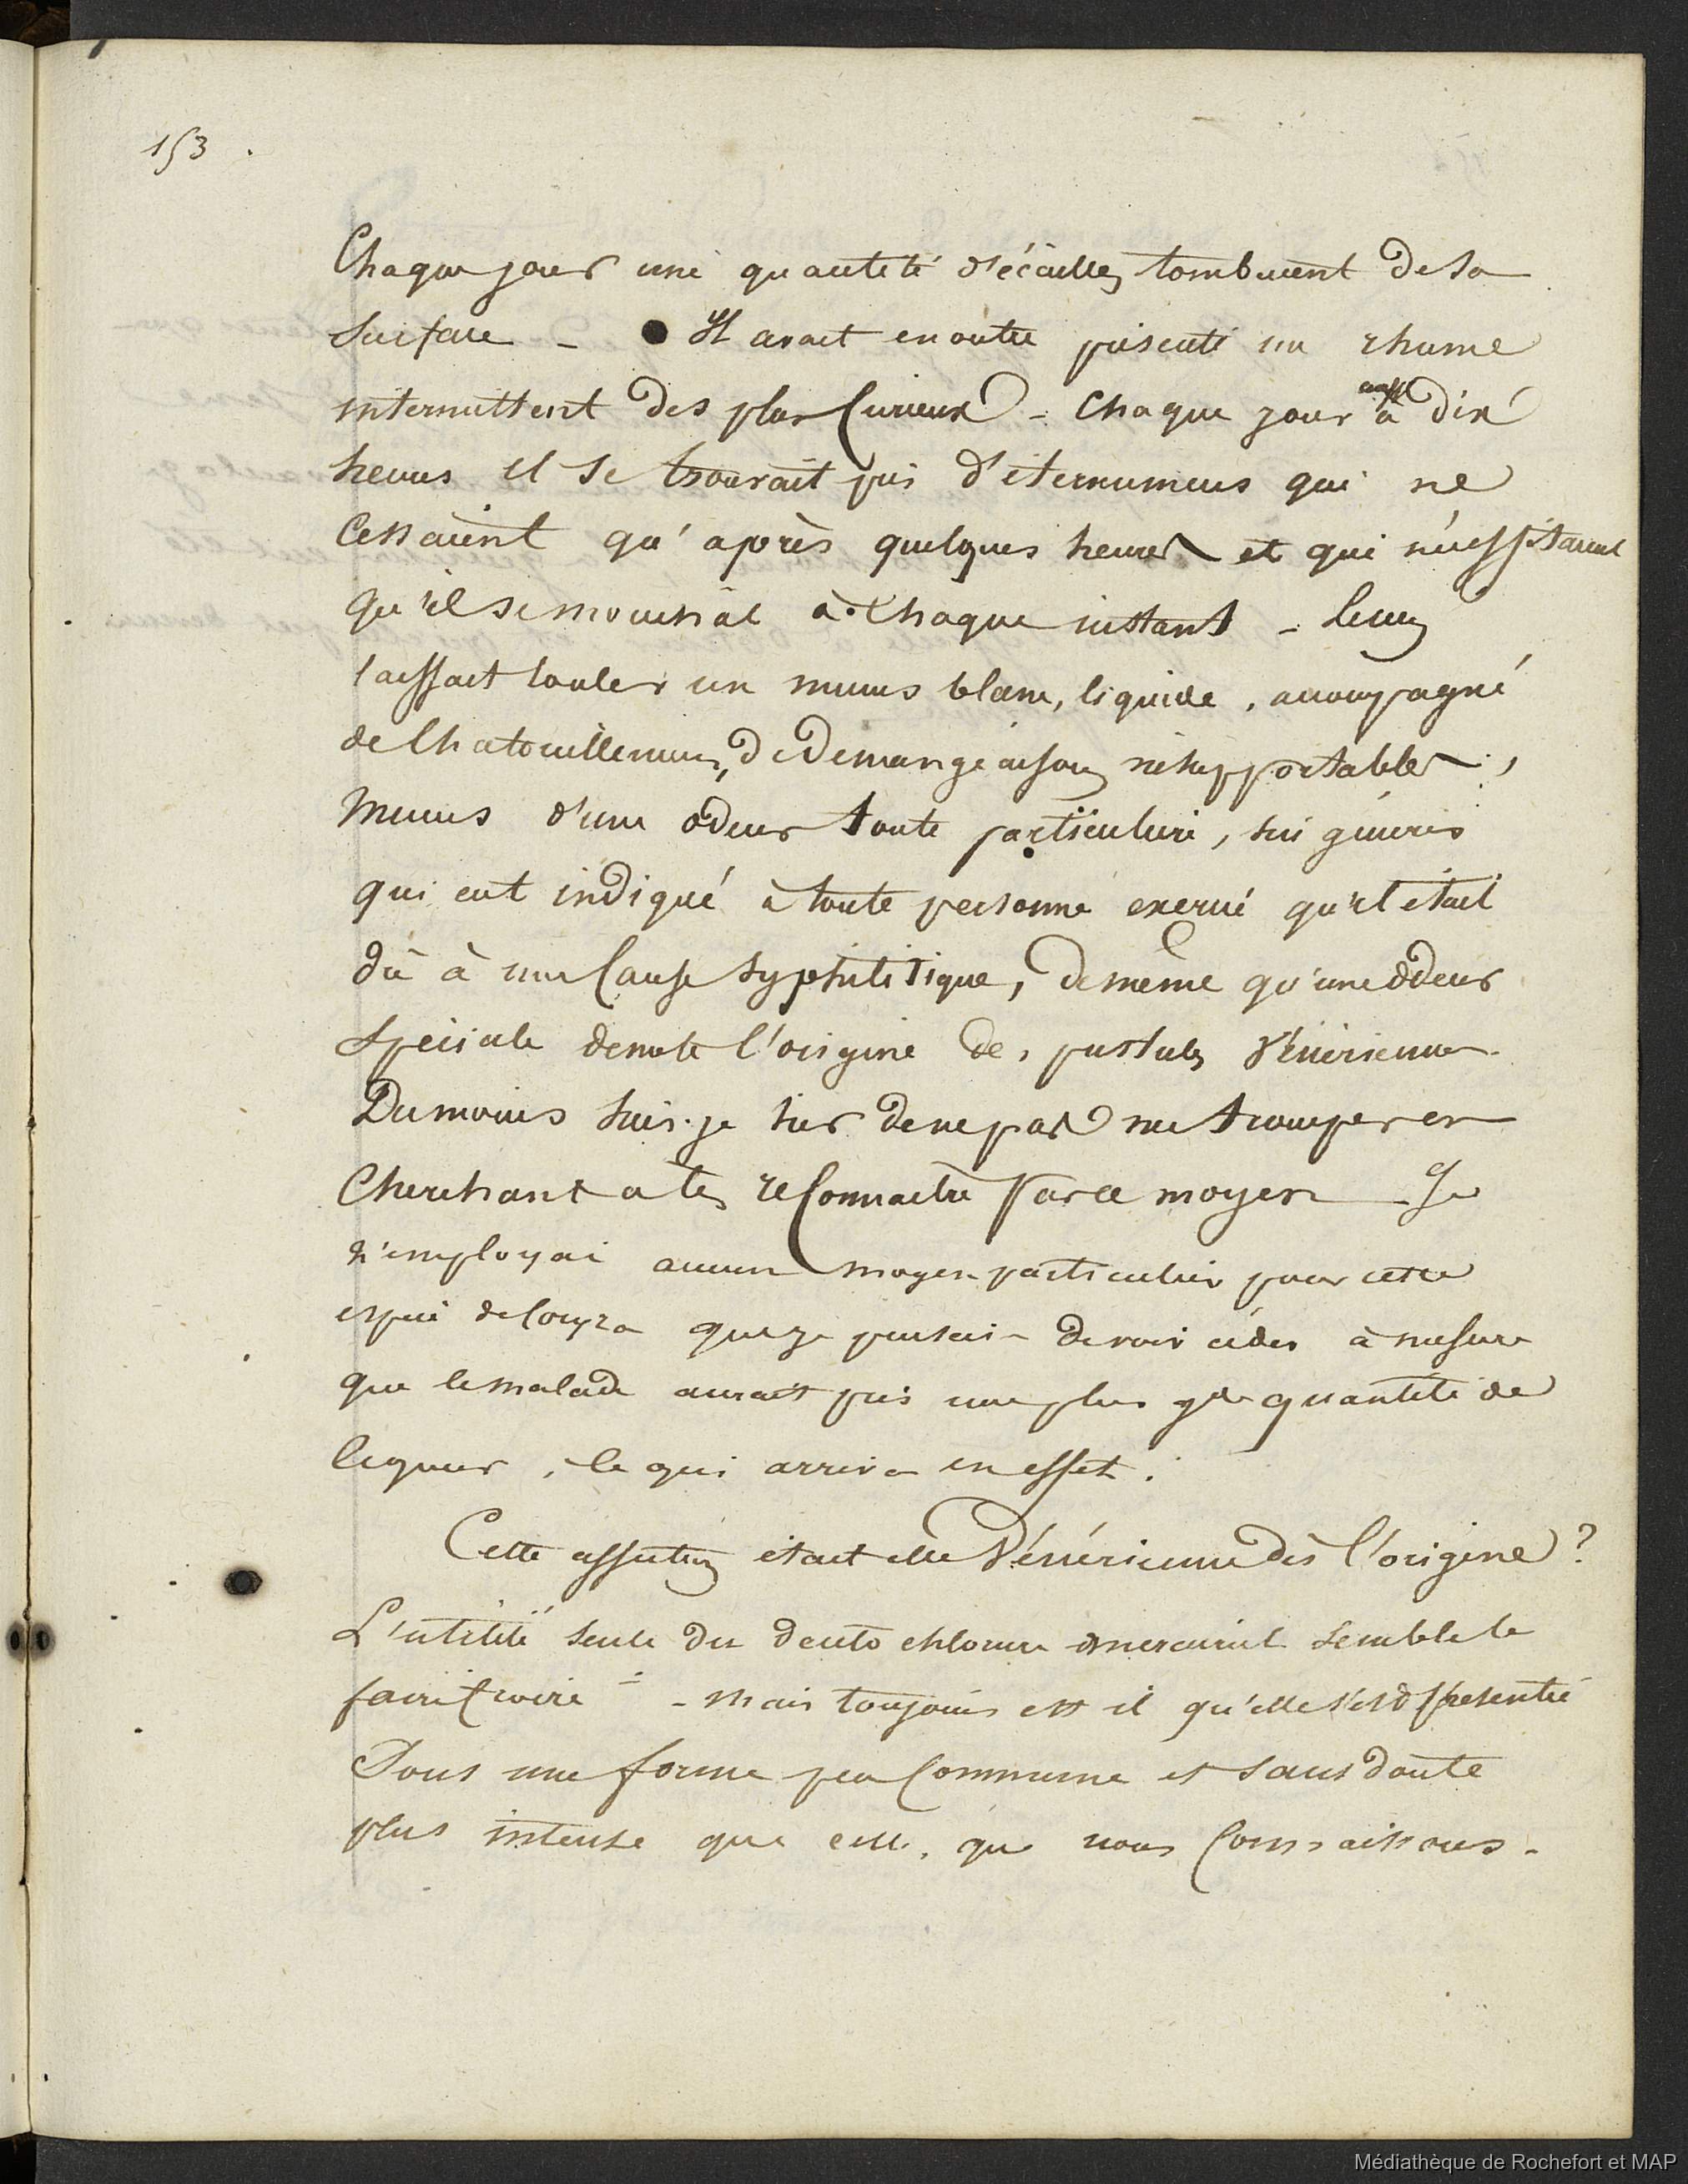 153 .
Chaque jour une quantité d'écailles tombaient de sa
surface - Il avait en outre présenté un rhume
intermittent des plus curieux - chaque jour aussi à dix
heures il se trouvait pris d'éternumens qui ne
cessaient qu'après quelques heures et qui nécessitaient
qu'il se mouchât à chaque instant -
laissait couler un mucus blanc, liquide, accompagné
de chatouillemens, de demangeaisons insupportables,
mucus d'une odeur toute particulière, sui généris
qui eut indiqué à toute personne exercée qu'il était
dû à une cause syphilitique, de même qu'une odeur
spéciale denote l'origine des pustules vénériennes.
Du moins suis-je sûr de ne pas me tromper en
cherchant a les reconnaitre par ce moyen - Je
n'employai aucun moyen particulier pour cette
espèce de coryza que je pensais devoir céder à mesure
que le malade aurait pris une plus gde quantité de
liqueur, ce qui arriva en effet.
Cette affection était elle vénérienne dès l'origine ?
L'utilité seule du deuto chlorure mercuriel semble le
faire croire - mais toujours est il qu'elle s'est présentée
sous une forme peu commune et sans doute
plus intense que celle que nous connaissons.
Médiathèque de Rochefort et MAP